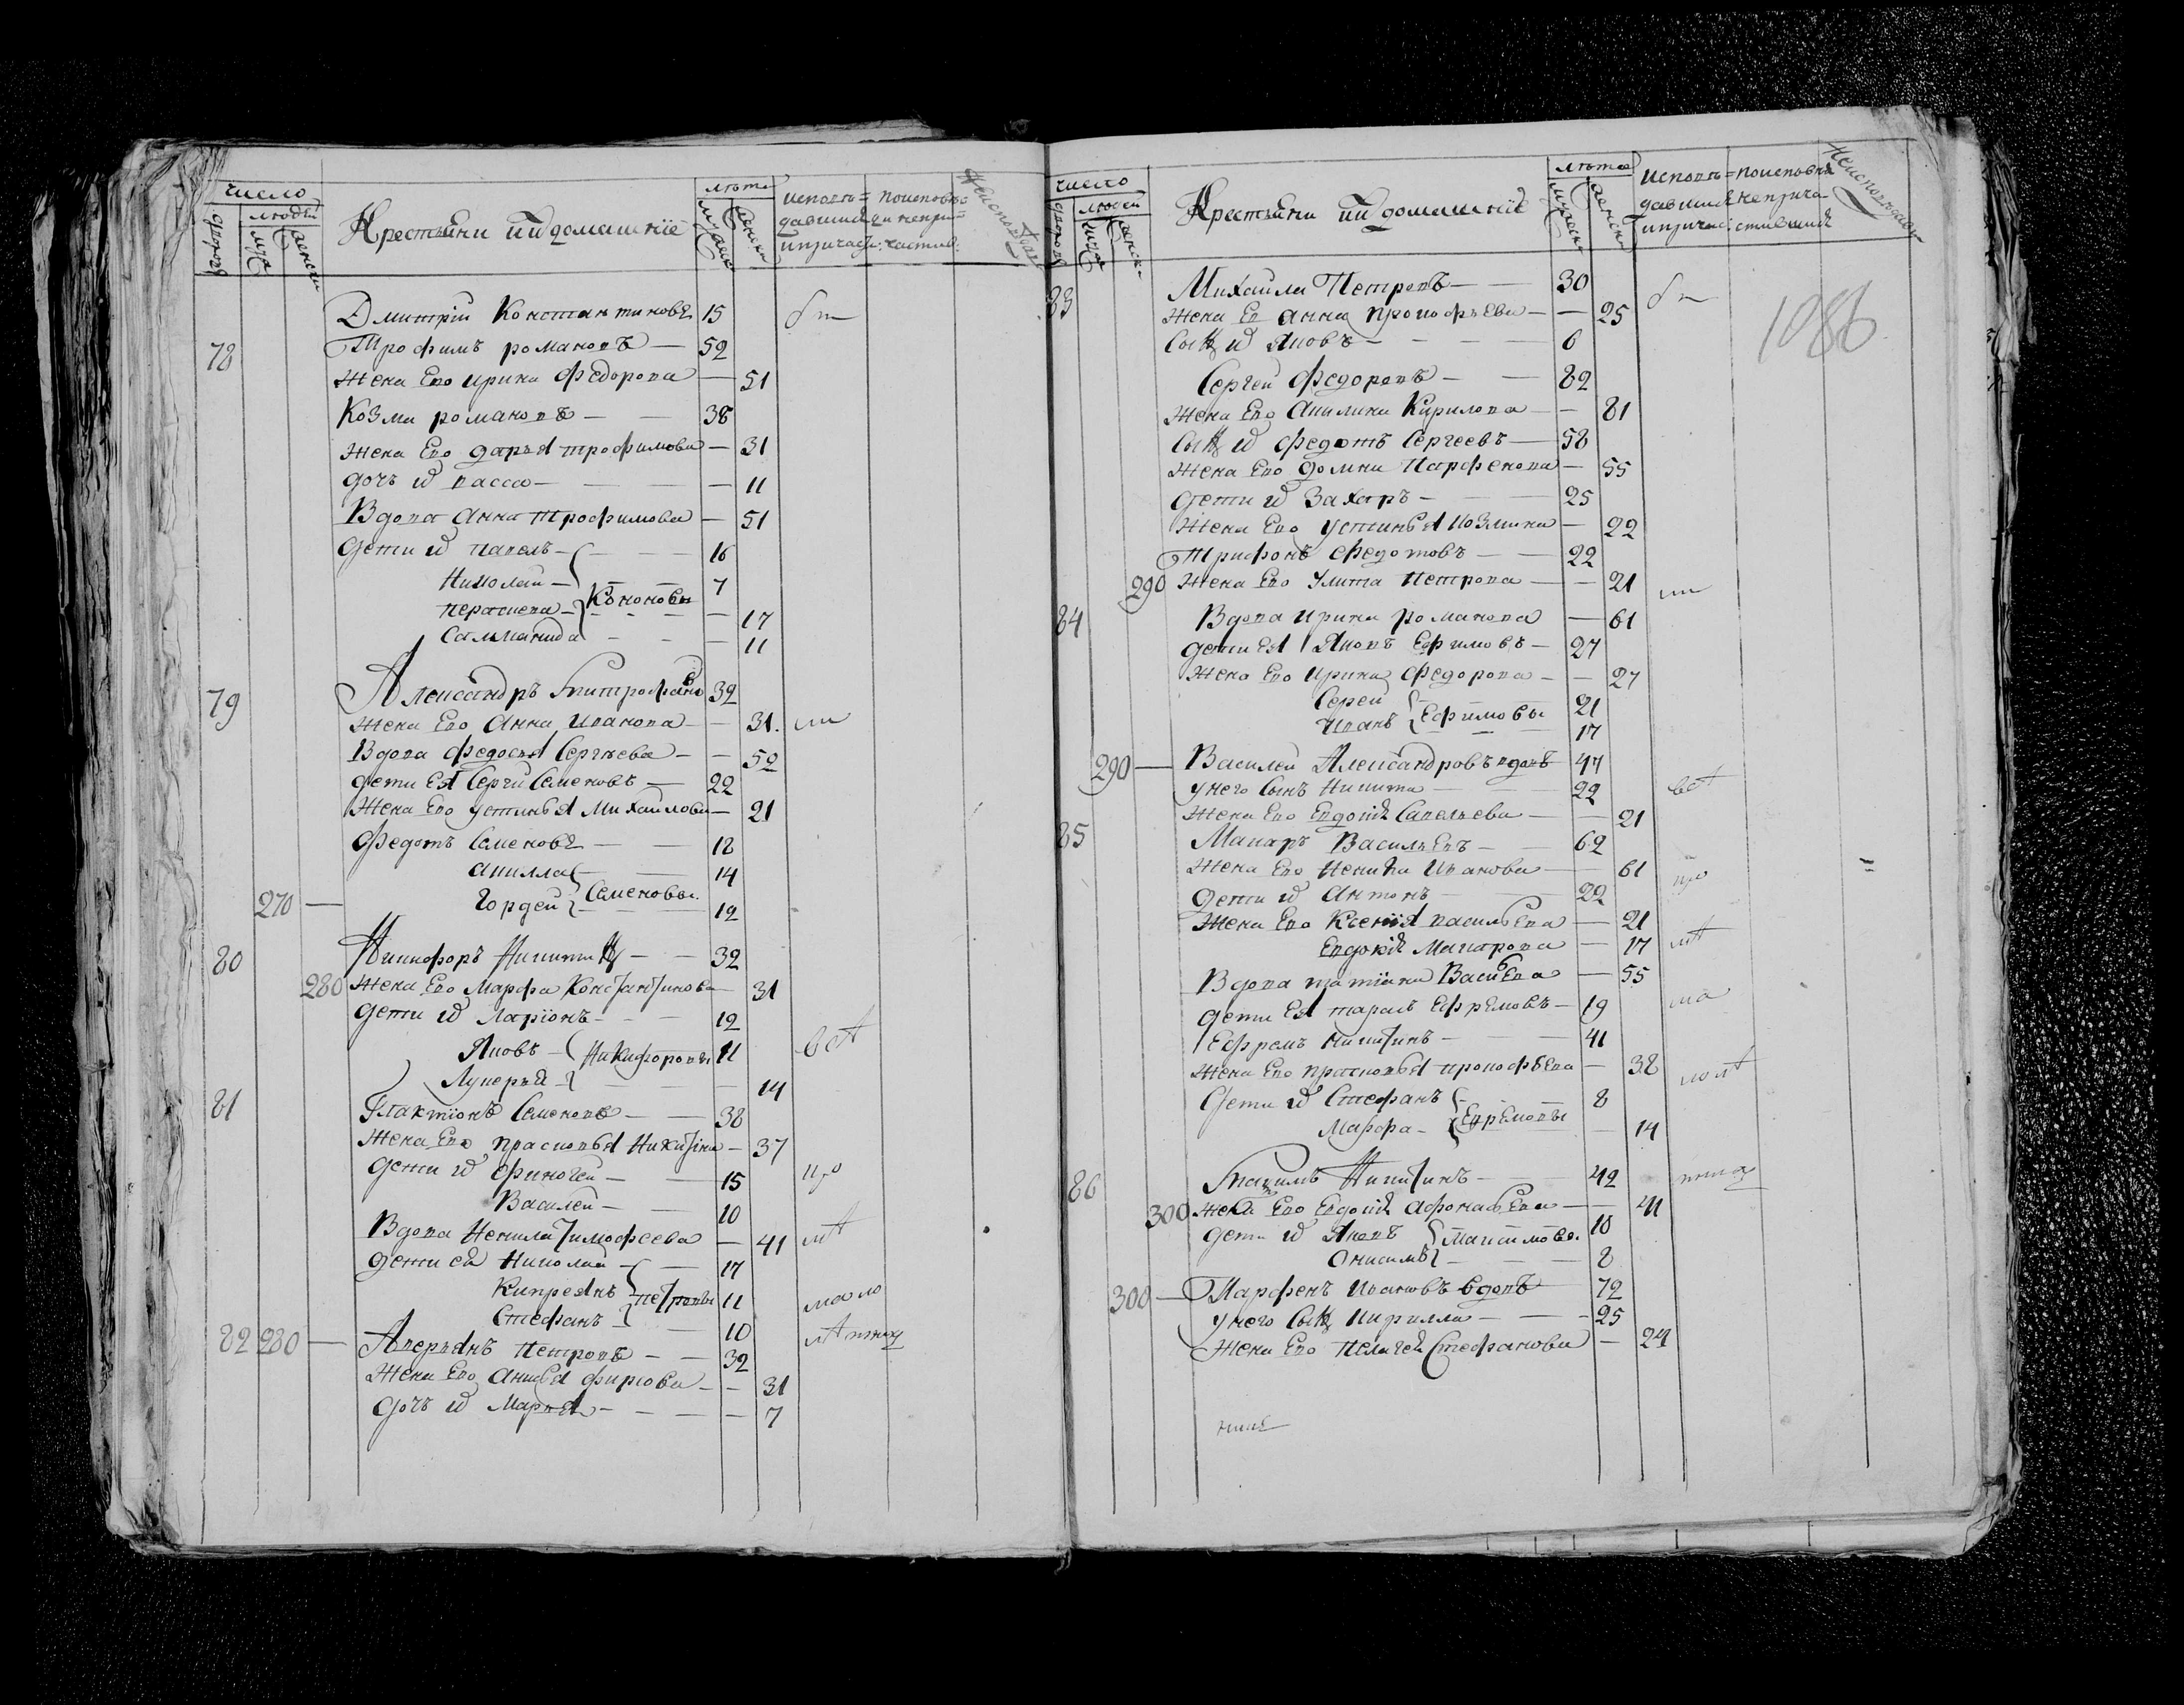 число
людей
дворовъ
муж
женск
Крестьяни ии домашнїе
лѣта
мужеск
женски
исповѣ=
давшияся
и причаст:
поисповѣ
ди непри=
частив:
Неисповѣдав
Дмитрїи Константиновъ 15
78 Трофимъ романовъ 52
Жена Ево ирина Федорова 51
Козма романовъ 38
Жена Ево дарья трофимова 31
дочь их васса 11
Вдова Анна трофимова 51
Дети их павелъ 16
Николаи 7
Кононовы
перасчева 17
Саломанида 11
79 Александръ Митрофановъ 32
Жена Ево Анна Иванова 31.
Вдова Федосья Сергѣева 52
дети Ея Сергїи Семеновъ 22
Жена Ево устинья Михаилова 21
Федотъ Семеновъ 18
Анилла 14
Семеновы.
270 Гордеи 12
80 Никифоръ Никитин 32
280 Жена Ево Марфа Константинова 31
Дети их Ларїонъ 12
Яковъ Никифоровы 11
Лукерья 14
81 Галактїонъ Семеновъ 38
Жена Ево прасковья Никитина 37
Дети их Финогеи 15
Василеи 10
Вдова Ненила Тимофеева 41
дети ея Николаи 17
Кипреянъ петровы 11
Стефанъ 10
82 280 Аверьянъ Петровъ 32
Жена Ево Анисья фирсова 31
дочь их Марья 7
число
людей
дворовъ
мужес
женск
Крестьяни ии домашнїе
лѣта
мужеск
женски
Исповѣ=
давшияся
и причас:
поисповѣди
неприча
стившия
Неисповѣдав
1086
83 Михаила Петровъ 30
Жена Ев анна прокофьева 25
Сын их Яковъ 6
Сергеи Федоровъ 82
Жена Ево Акилина Кирилова 81
Сын их Федотъ Сергеевъ 58
Жена Ево домна Парфенова 55
дети их Захаръ 25
Жена Ево устинья козмина 22
Трифонъ Федотовъ 22
290 Жена Ево Улита Петрова 21
84 Вдова ирина романова 61
дети Ея Яковъ Ефимовъ 27
Жена Ево ирина Федорова 27
Сергеи 21
Ефимовы
Иванъ 17
290 Василеи Александровъ вдовъ 47
у него сынъ Никита 22
Жена Ево Евдокия Савельева 21
85 Макаръ Васильевъ 62
Жена Ево Ненила Иванова 61
дети их Антонъ 22
Жена Ево Ксения васильева 21
Евдокия Макарова 17
Вдова татияна Васильева 55
дети Ея тарасъ Ефремовъ 19
Ефремъ Никитинъ 41
Жена Ево прасковья прокофьева 38
Дети их Стефанъ 8
Ефремовы
Марфа 14
86 Максимъ Никитинъ 42
300 Жена Ево Евдокия Афонасьева 41
дети их Яковъ Максимовы. 10
Онисимъ 8
300 Парфенъ Ивановъ вдовъ 72
у него Сын Кирилла 25
Жена Ево Пелагея Стефанова 24